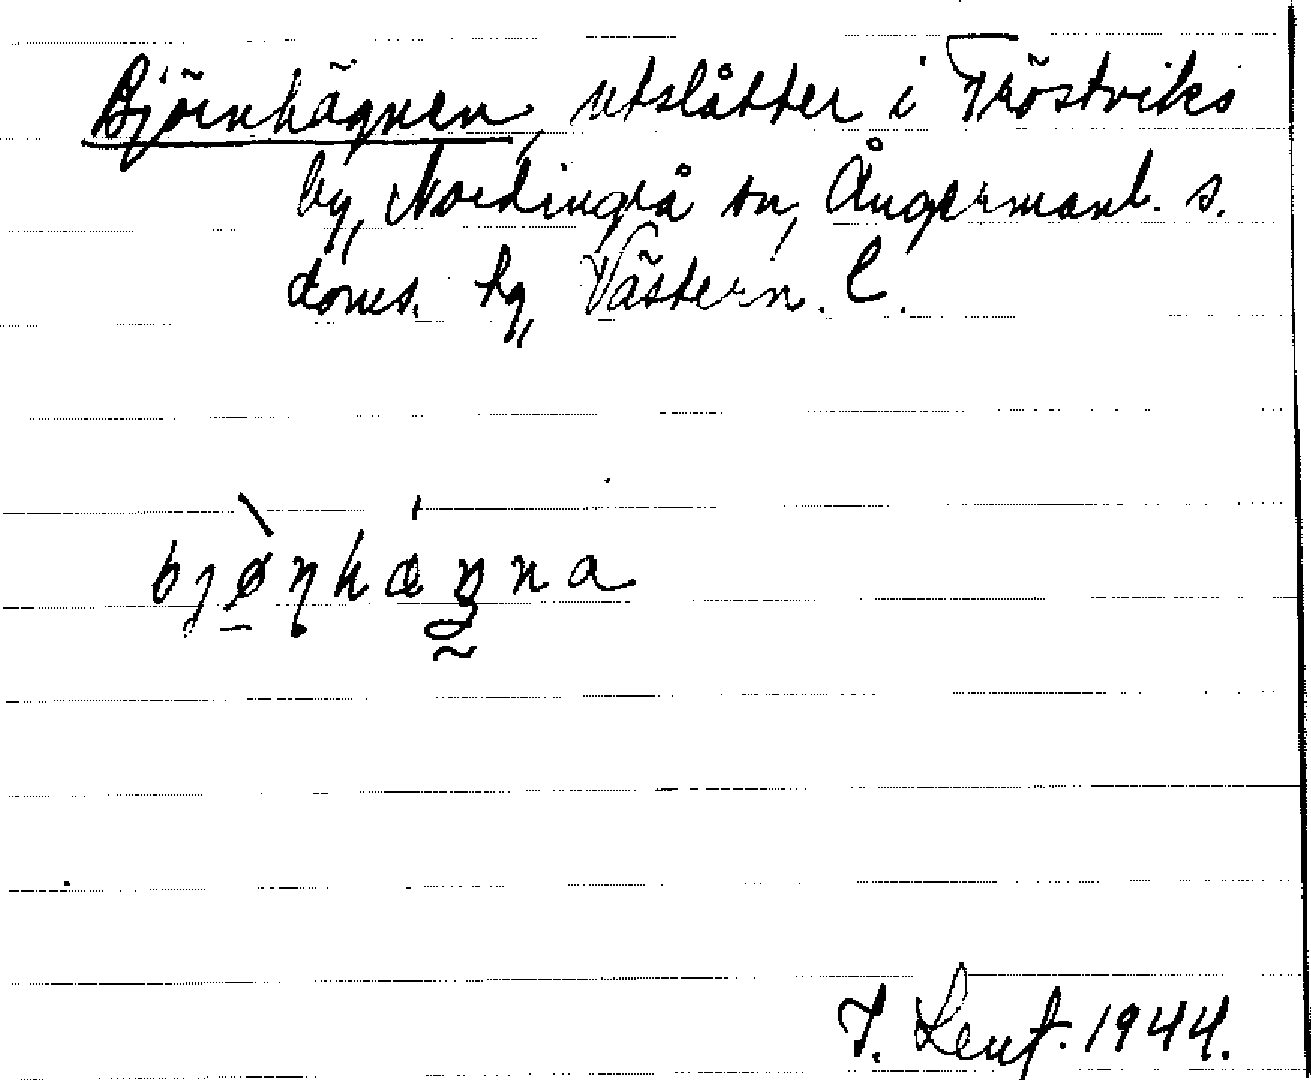 Björnhägnen, utslåtter i Tröstviks
by, Nordingrå sn, Ångermanl. s.
doms. hg, Västern. l.
bjø̠̀ṇhæŋna
J. Leuf. 1944.